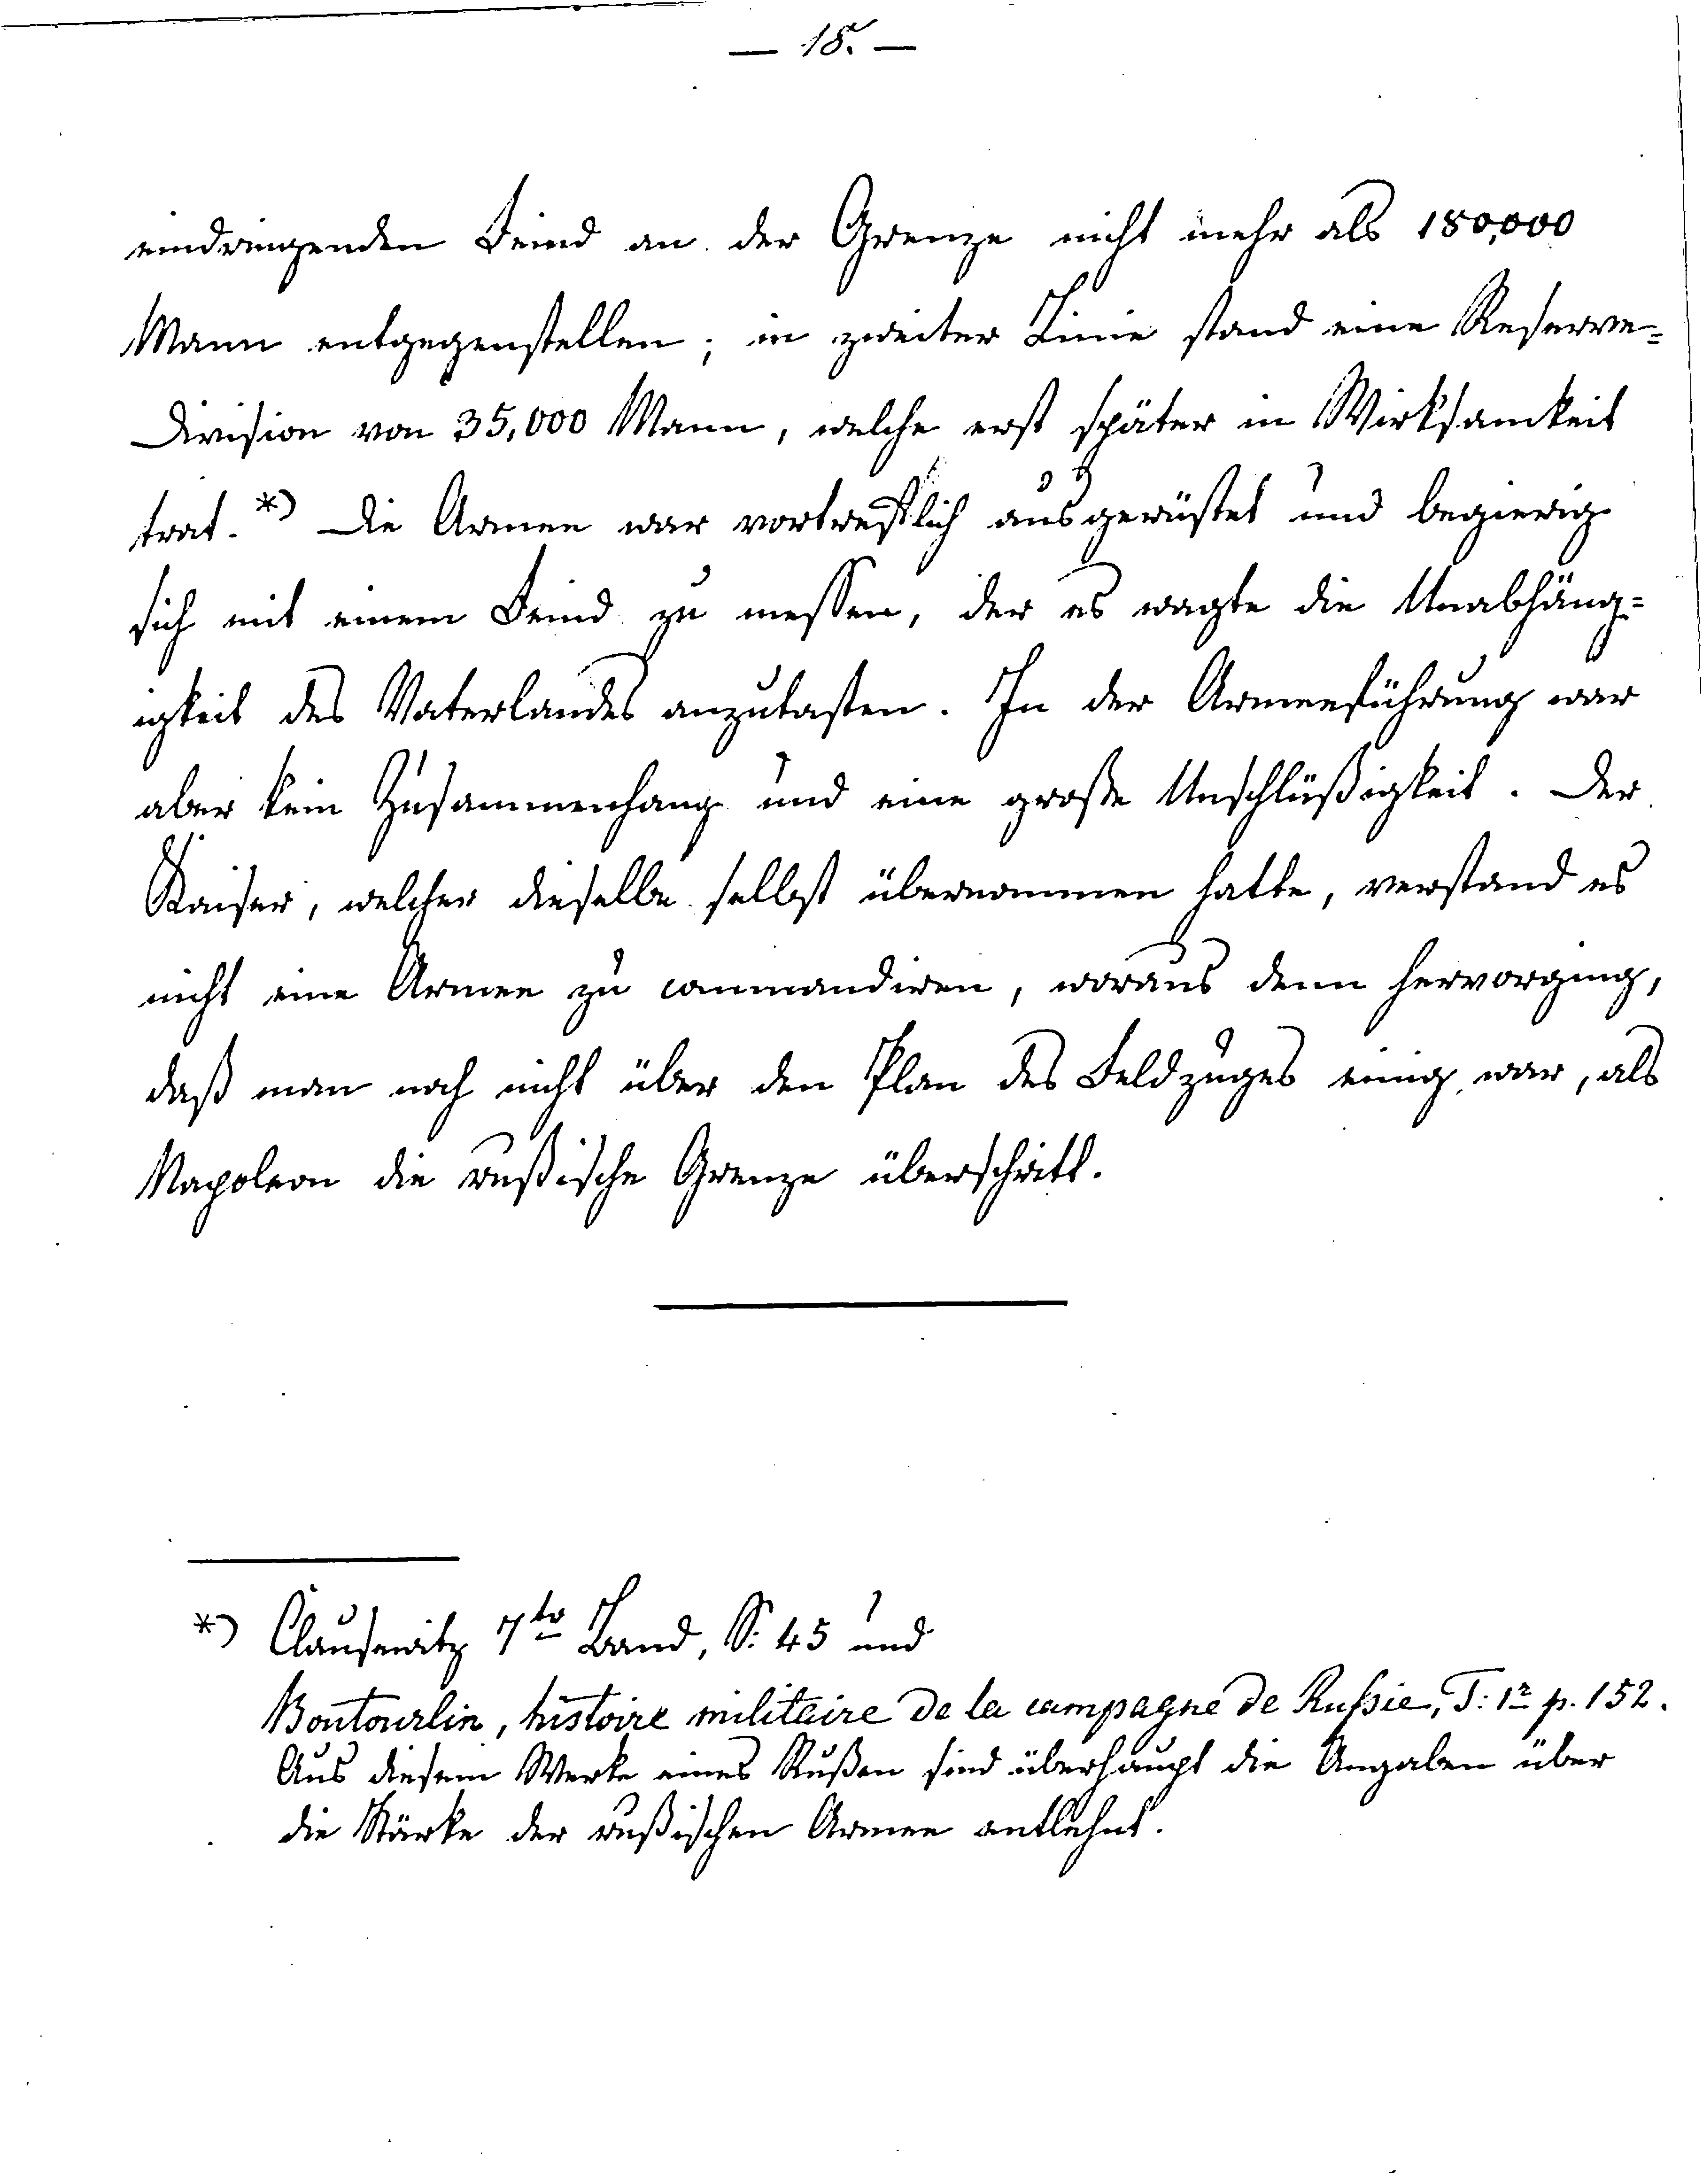 — 18. —
eindringenden Feind an der Grenze nicht mehr als 180,000
Mann entgegenstellen; in zweiter Linie stand eine Reserve=
Division von 35,000 Mann, welche erst später in Wirksamkeit
trat. *) Die Armee war vortrefflich ausgerüstet und begierig
sich mit einem Feind zu messen, der es wagte die Unabhäng=
igkeit des Vaterlandes anzutasten. In der Armeeführung war
aber kein Zusammenhang und eine große Unschlüßigkeit. Der
Kaiser, welcher dieselbe selbst übernommen hatte, verstand es
nicht eine Armee zu commandiren, woraus denn hervorging,
daß man noch nicht über den Plan des Feldzuges einig war, als
Napoleon die rußische Grenze überschritt.
*) Clausewitz 7ter Band, S: 45 und
Boutourlin, histoire militaire de la campagne de Russie, T: 1r p. 152.
Aus diesem Werke eines Rußen sind überhaupt die Angaben über
die Stärke der rußischen Armee entlehnt.